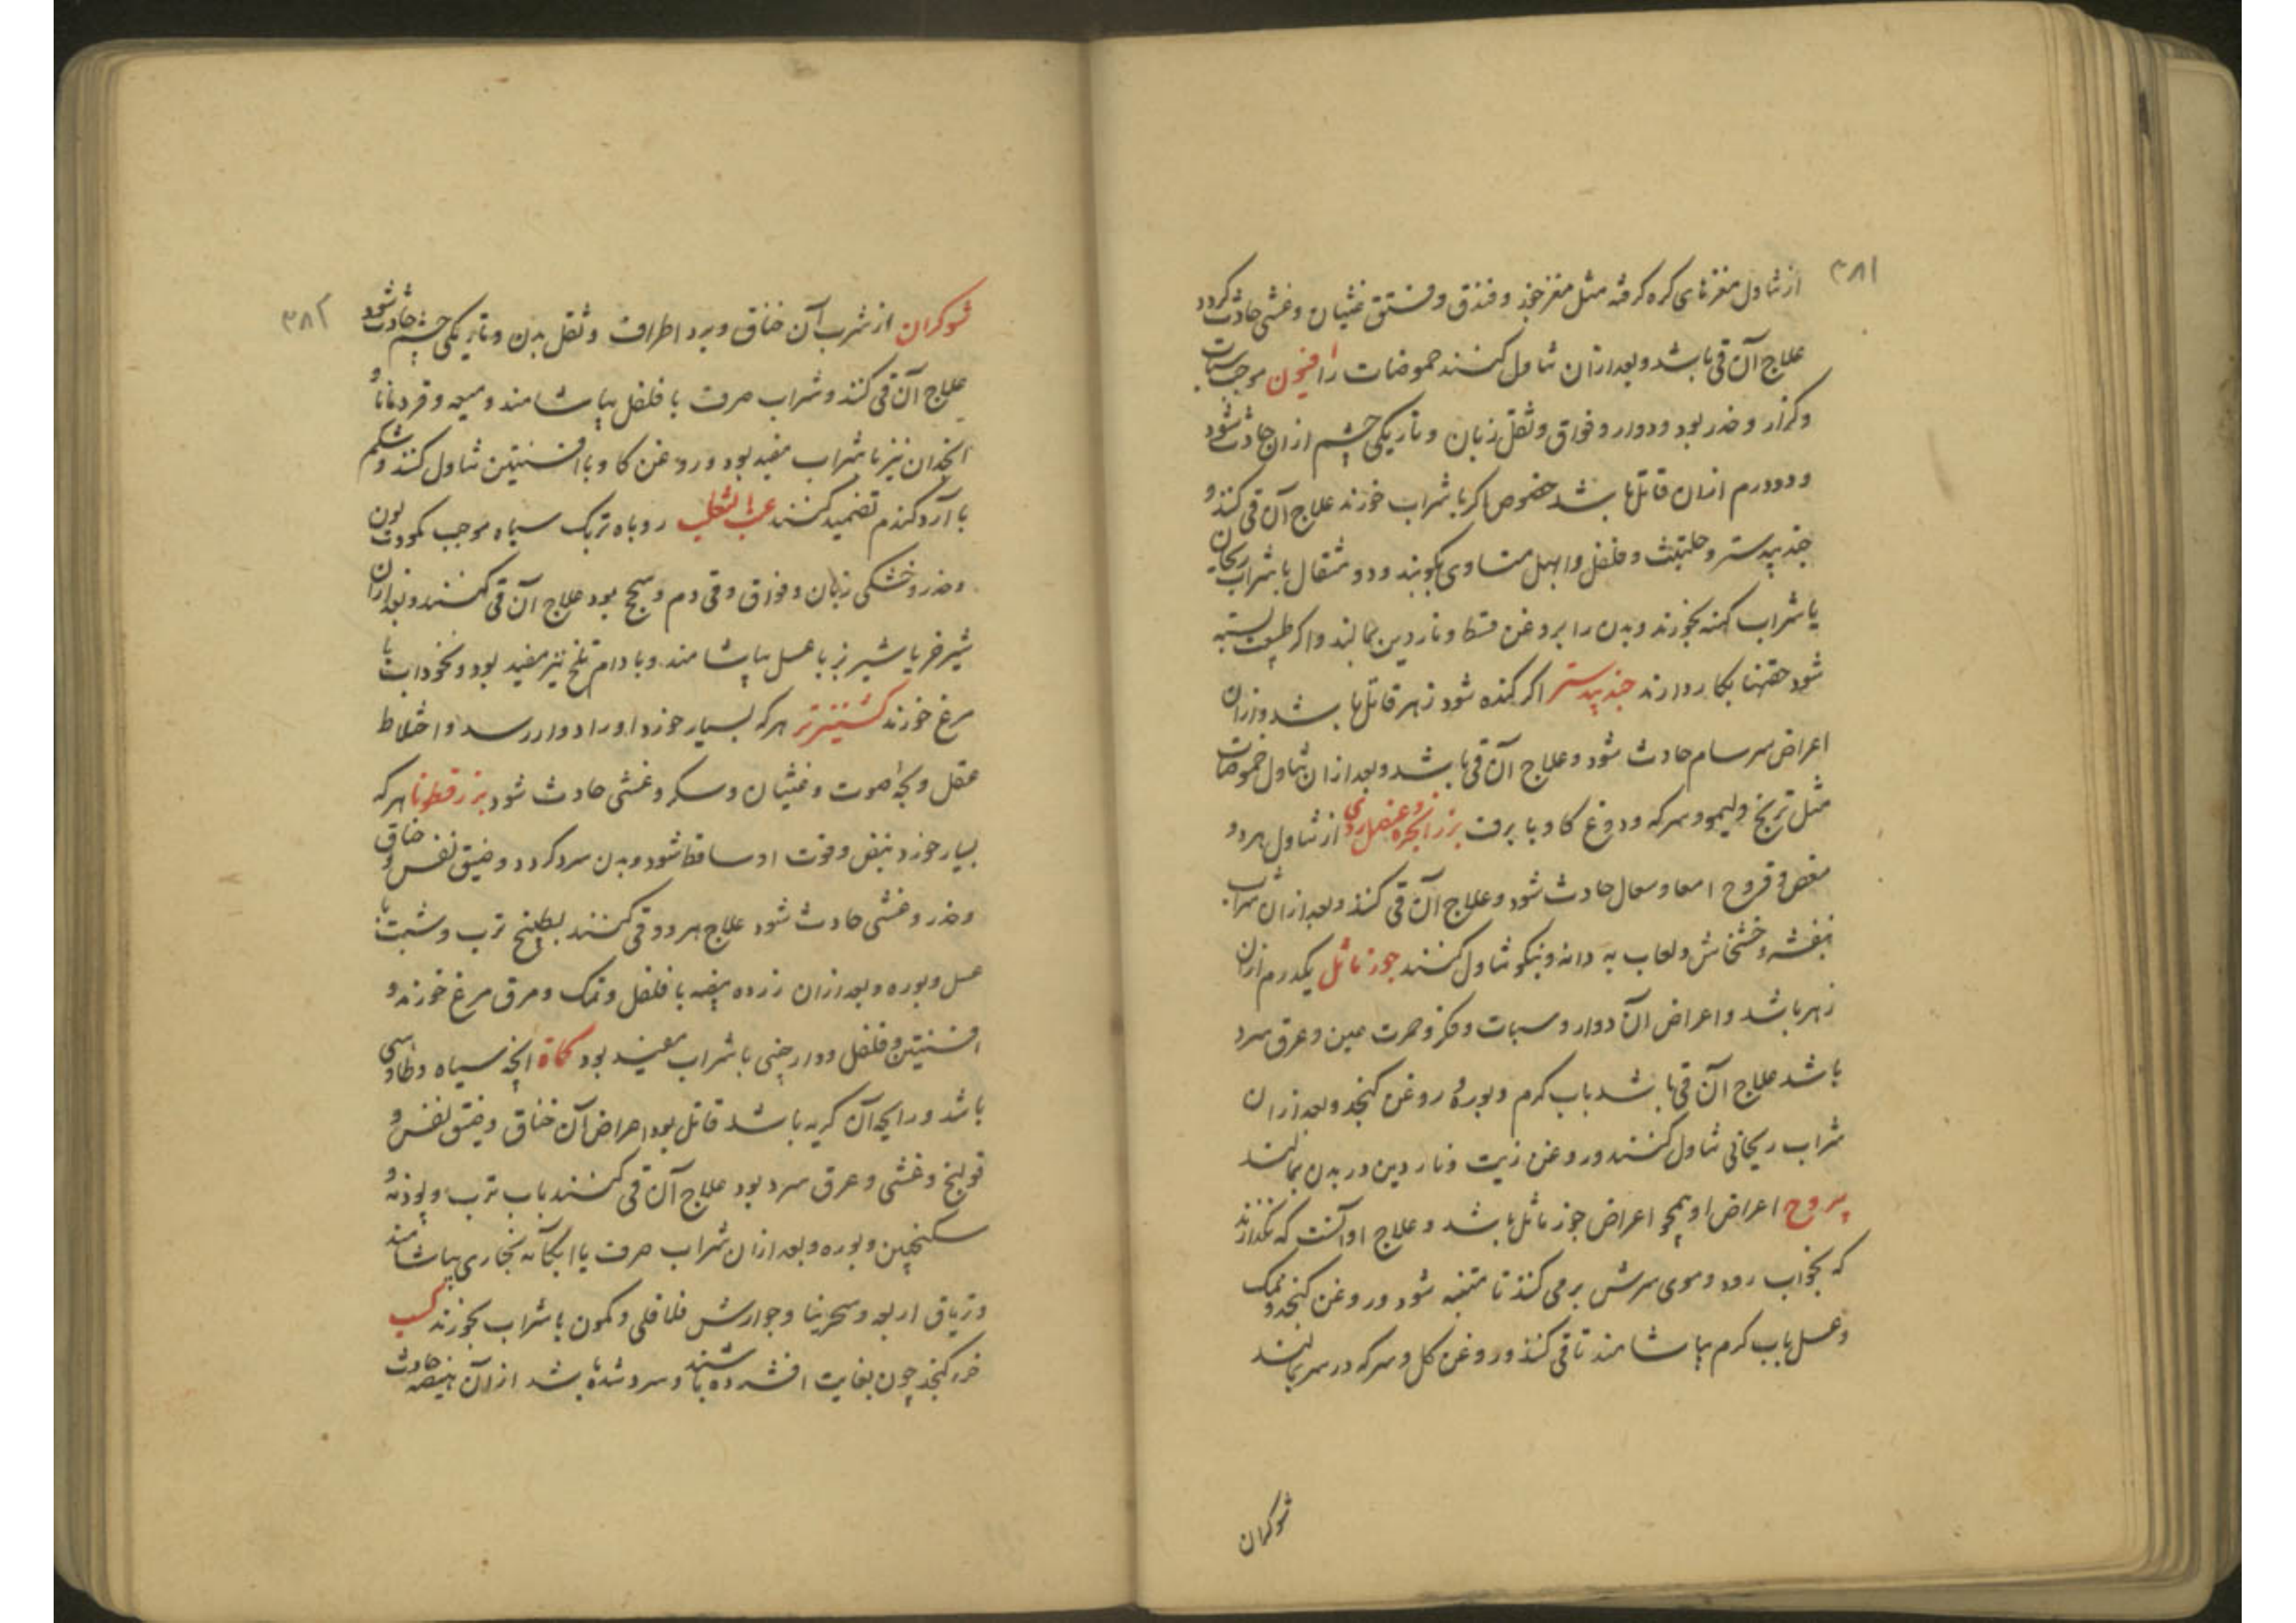 ۳۸۱
از تناول مغزهای کره کرفته مثل مغز جوز و فندق و فستق غثیان و غشی حادث کردد
علاج آن قی باشد و بعد از ان تناول کنند حموضات را افیون موجب سبات
و کزاز و خدر بود و دوار و فواق و ثقل زبان و تاریکی چشم از ان حادث شود
و دو درم از ان قاتل باشد خصوصا کر با شراب خورند علاج آن قی کنند و
جند بیدستر و حلتیث و فلفل و ابهل متساوی بکوبند و دو مثقال با شراب ریحان
یا شراب کهنه بخورند و بدن را بروغن قسط و ناردین بمالند و اکر طبیعت بسته
شود حقنها بکار دارند جند بیدستر اکر کنده شود زهر قاتل باشد و از ان
اعراض سرسام حادث شود و علاج آن قی باشد و بعد از ان تناول حموضات
مثل ترنج و لیمو و سرکه و دوغ کاو با برف بزر انجره و عنصل بری از تناول هر دو
مغص و قروح امعا و سعال حادث شود و علاج آن قی کنند و بعد از ان شراب
بنفشه و خشخاش و لعاب به دانه و بنکو تناول کنند جوز ماثل یکدرم از ان
زهر باشد و اعراض آن دوار و سبات و فکر و حمرت عین و عرق سرد
باشد علاج آن قی باشد باب کرم و بوره و روغن کنجد و بعد از ان
شراب ریحانی تناول کنند و روغن زیت و ناردین در بدن بمالند
یبروح اعراض او همچو اعراض جوز ماثل باشد و علاج او آنست که نکذارند
که بخواب رود و موی سرش برمی کنند تا متنبه شود و روغن کنجد و نمک
و عسل باب کرم بیاشامند تا قی کنند و روغن کل و سرکه در سر بمالند
شوکران
۳۸۲
شوکران از شرب آن خناق و برد اطراف و ثقل بدن و تاریکی چشم حادث شود
علاج آن قی کنند و شراب صرف با فلفل بیاشامند و میعه و قردمانا و
انجدان نیز با شراب مفید بود و روغن کاو با افسنتین تناول کنند و شکم
با آرد کندم تضمید کنند عنب الثعلب روباه تربک سیاه موجب کمودت لون
و خدر و خشکی زبان و فواق و قی دم و سحج بود علاج آن قی کنند و بعد از ان
شیر خر یا شیر بز با عسل بیاشامند و بادام تلخ نیز مفید بود و نخوداب با
مرغ خورند کشنیز تر هر که بسیار خورد او را دوار رسد و اختلاط
عقل و بحه صوت و غثیان و سکر و غشی حادث شود بزرقطونا هر که
بسیار خورد نبض و قوت او ساقط شود و بدن سرد کردد و ضیق نفس و خناق
و خدر و غشی حادث شود علاج هر دو قی کنند بطبیخ ترب و شبت با
عسل و بوره و بعد از ان زرده بیضه با فلفل و نمک و مرق مرغ خورند و
افسنتین و فلفل و دارچینی با شراب مفید بود کماة انچه سیاه و طاوسی
باشد و رایحه آن کریه باشد قاتل بود اعراض آن خناق و ضیق نفس و
قولنج و غشی و عرق سرد بود علاج آن قی کنند باب ترب و پودنه و
سکنجبین و بوره و بعد از ان شراب صرف یا ابکامه بخاری بیاشامند
و تریاق اربعه و سجرینا و جوارش فلافلی و کمون با شراب بخورند کسب
خرد کنجد چون بغایت افشرده باشند و سرد شده باشد از آن هیضه حادث